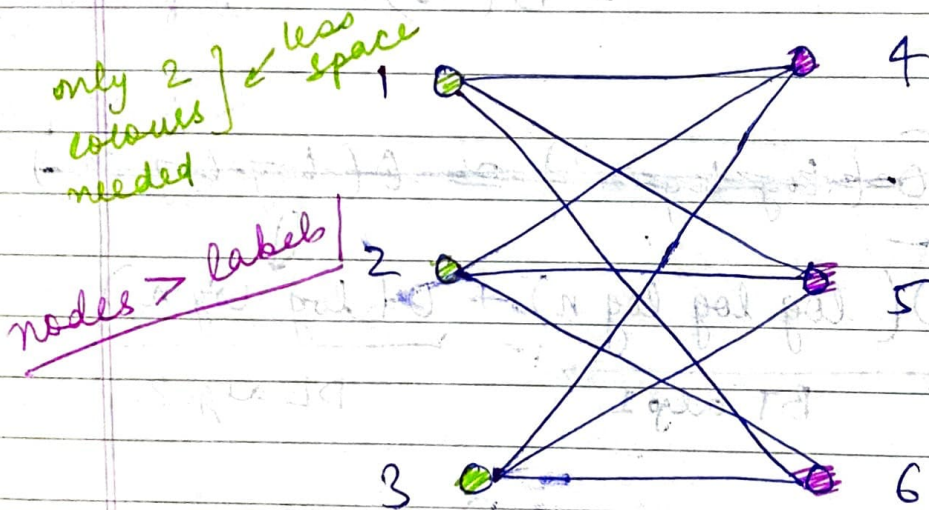 only 2
colours
needed
less
space
nodes > labels
1
4
2
5
3
6